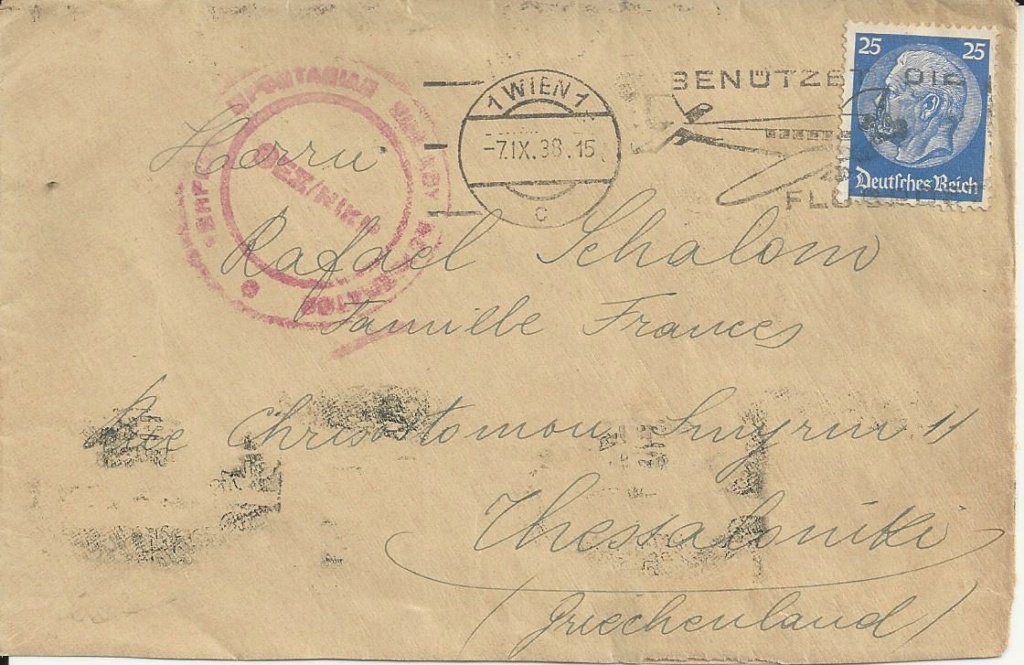 25 25
Deutsches Reich
BENÜTZET DIE
1 WIEN 1
-7.IX.38.15
C
Herrn
Rafael Schalom
Famille Frances
Rue Chrisostomou Smyrni 11
Thessaloniki
(Griechenland)